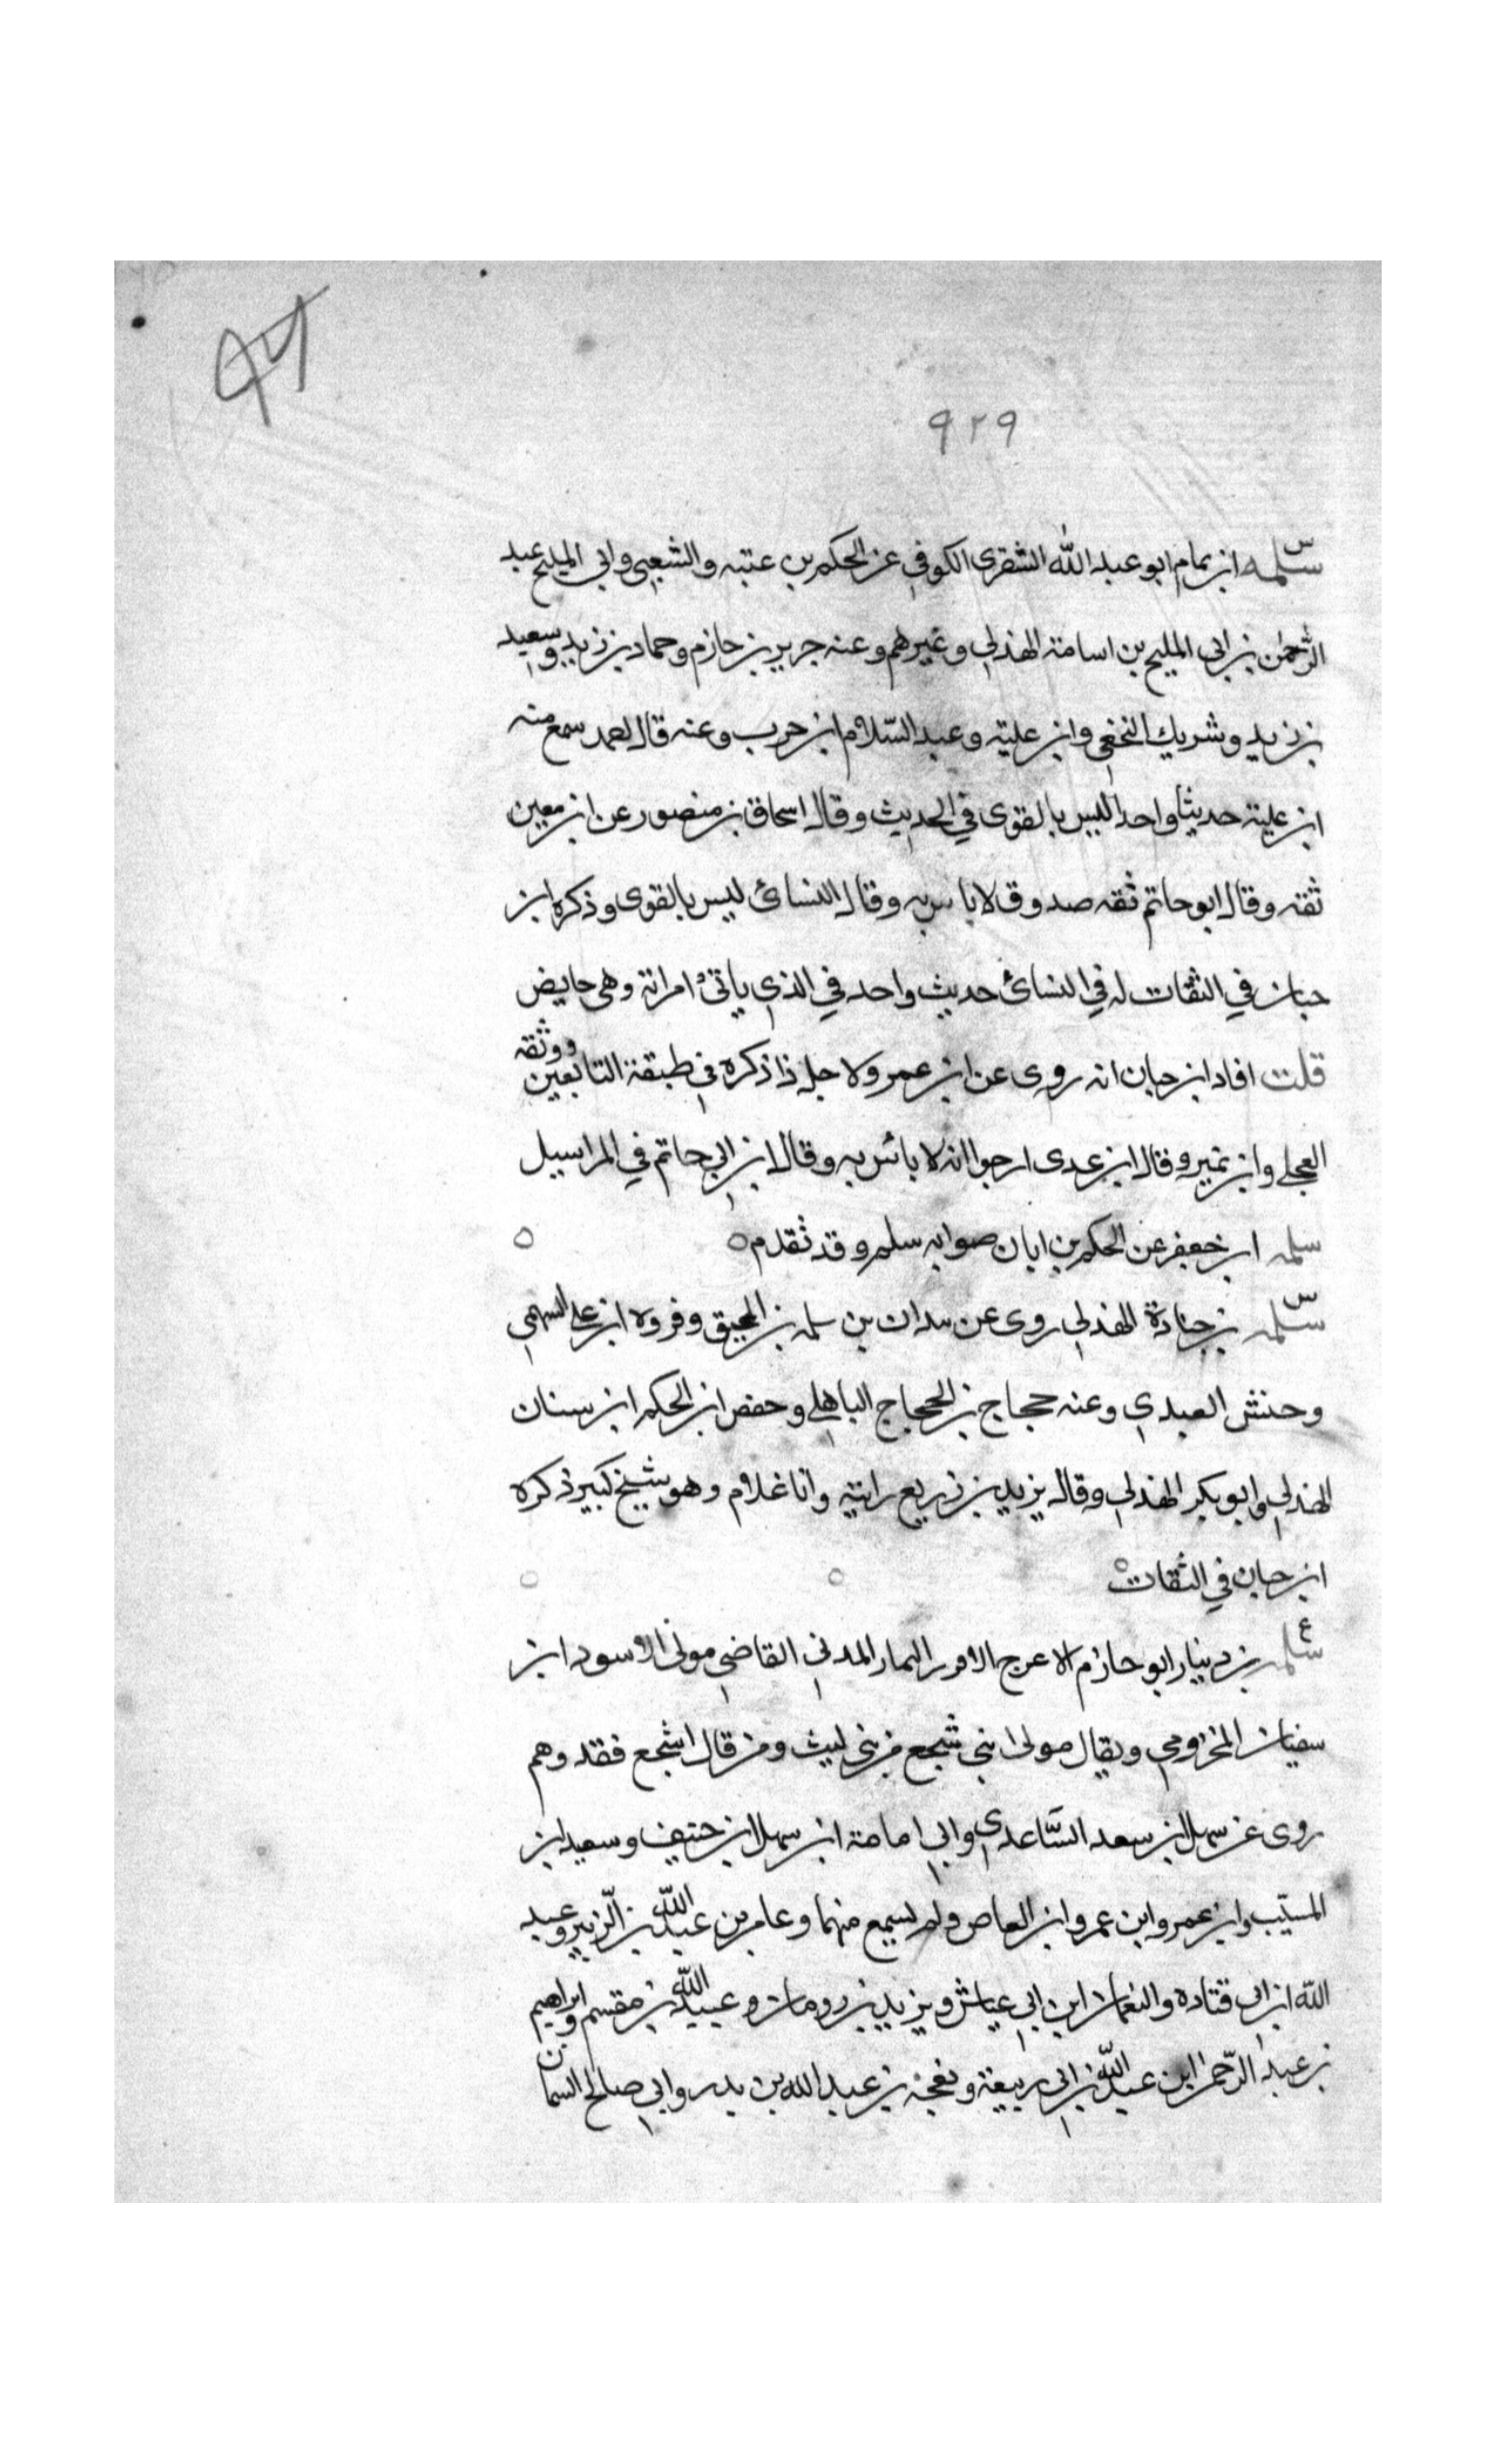 ٩٢٩
س
سلمه ابن تمام ابو عبد الله الشقرى الكوفي عن الحكم بن عتبه والشعبي وابي المليح عبد
الرحمن بن ابى المليح بن اسامة الهذلي وغيرهم وعنه جرير بن حازم وحماد بن زيد وسعيد
بن زيد وشريك النخعي وابن علية وعبد السلام ابن حرب وعنه قال احمد سمع منه
ابن علية حديثا واحدا ليس بالقوى في الحديث وقال اسحاق بن منصور عن ابن معين
ثقة وقال ابو حاتم ثقه صدوق لا باس به وقال النسائ ليس بالقوى وذكره ابن
حبان في الثقات له في النسائ حديث واحد في الذي ياتئ امراته وهى حايض
قلت افاد ابن حبان انه روى عن ابن عمر ولاجل ذا ذكره في طبقة التابعين ووثقه
العجلي وابن نمير وقال ابن عدى ارجوا انه لا بائس به وقال ابن ابي حاتم في المراسيل
سلمه ابن جعفر عن الحكم بن ابان صوابه سلم وقد تقدم
س
سلمه بن جنادة الهذلي روى عن سدان بن سلمه بن المحبق وفروه ابن علي السهمي
وحنش العبدي وعنه حجاج بن الحجاج الباهلي وحفص ابن الحكم ابن سنان
الهذلي وابو بكر الهذلي وقال يزيد بن زريع رايته وانا غلام وهو شيخ كبير ذكره
ابن حبان في الثقات
ع
سلمه بن دينار ابو حازم الاعرج الافزر التمار المدني القاضي مولى الاسود ابن
سفيان المخزومي ويقال مولى ابني شجع من بنى ليث ومن قال اشجع فقد وهم
روى عن سهل ابن سعد الساعدى وابي امامة ابن سهل ابن حنيف وسعيد ابن
المسيب وابن عمر وابن عمرو ابن العاص ولم يسمع منهما وعامر بن عبد الله بن الزبير وعبد
الله ابن ابى قتاده والنعمان ابن ابي عياش ويزيد بن رومان وعبيد الله بن مقسم وابراهيم
بن عبد الرحمن ابن عبد الله بن ابى ربيعة وبعجة بن عبد الله بن بدر وابي صالح السمان